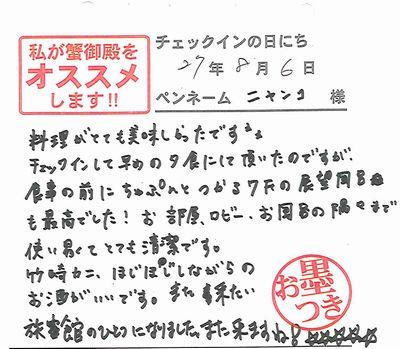 私が蟹御殿を
オススメ
します!!
チェックインの日にち
27年8月6日
ペンネーム ニャンコ 様
料理がとても美味しかったです
チェックインして早めの夕食にして頂いたのですが、
食事の前にちゃぷんとつかる7Fの展望風呂
も最高でした! お部屋、ロビー、お風呂の隅々まで
使い易くてとても清潔です。
竹崎カニ、ほじほじしながらの
お酒がいいです。また来たい
旅館のひとつになりました、また来ますね!
お墨つき